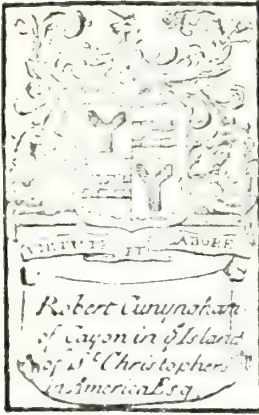 VIRTUTE ET LABORE
Robert Cunyngham
of Cayon in yͤ Island
of Sͭ Christophers
in America Esq